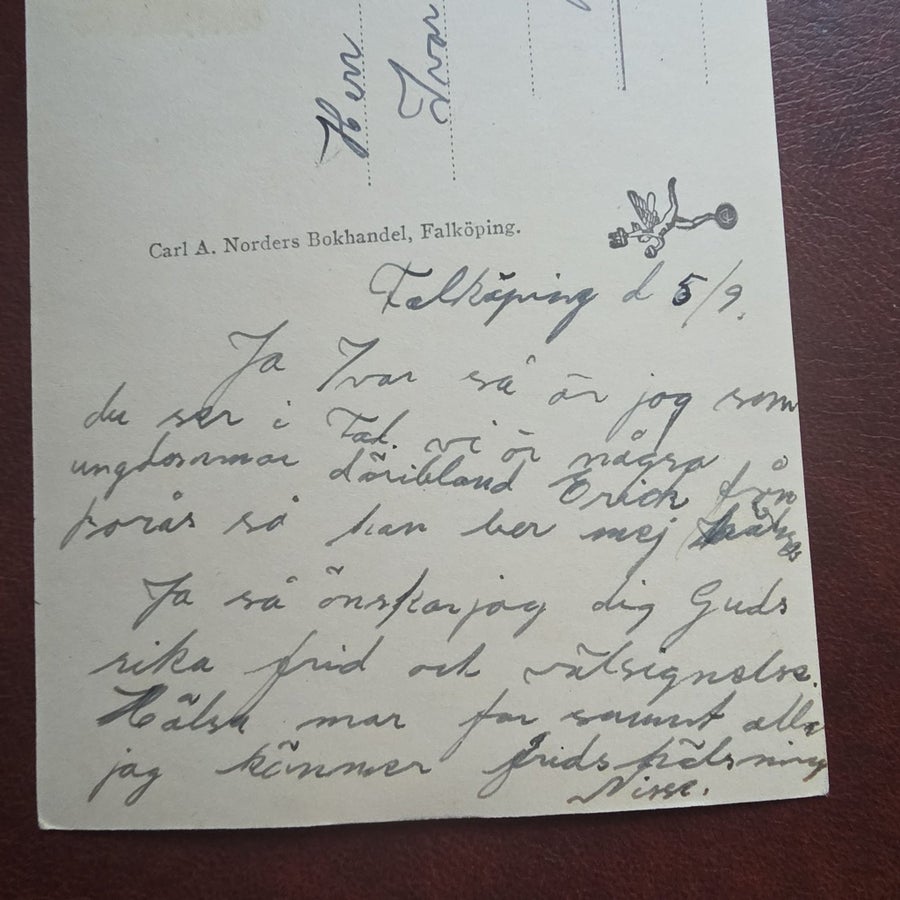 Herr
Ivar
Carl A. Norders Bokhandel, Falköping.
Falköping d 5/9.
Ja Ivar så är jag som
du ser i Fal. vi är några
ungdommar däribland Erick från
Borås så han ber mej hälsa
Ja så önskar jag dig Guds
rika frid och välsignelse.
Hälsa mor far samt alla
jag känner fridshälsning
Nisse.